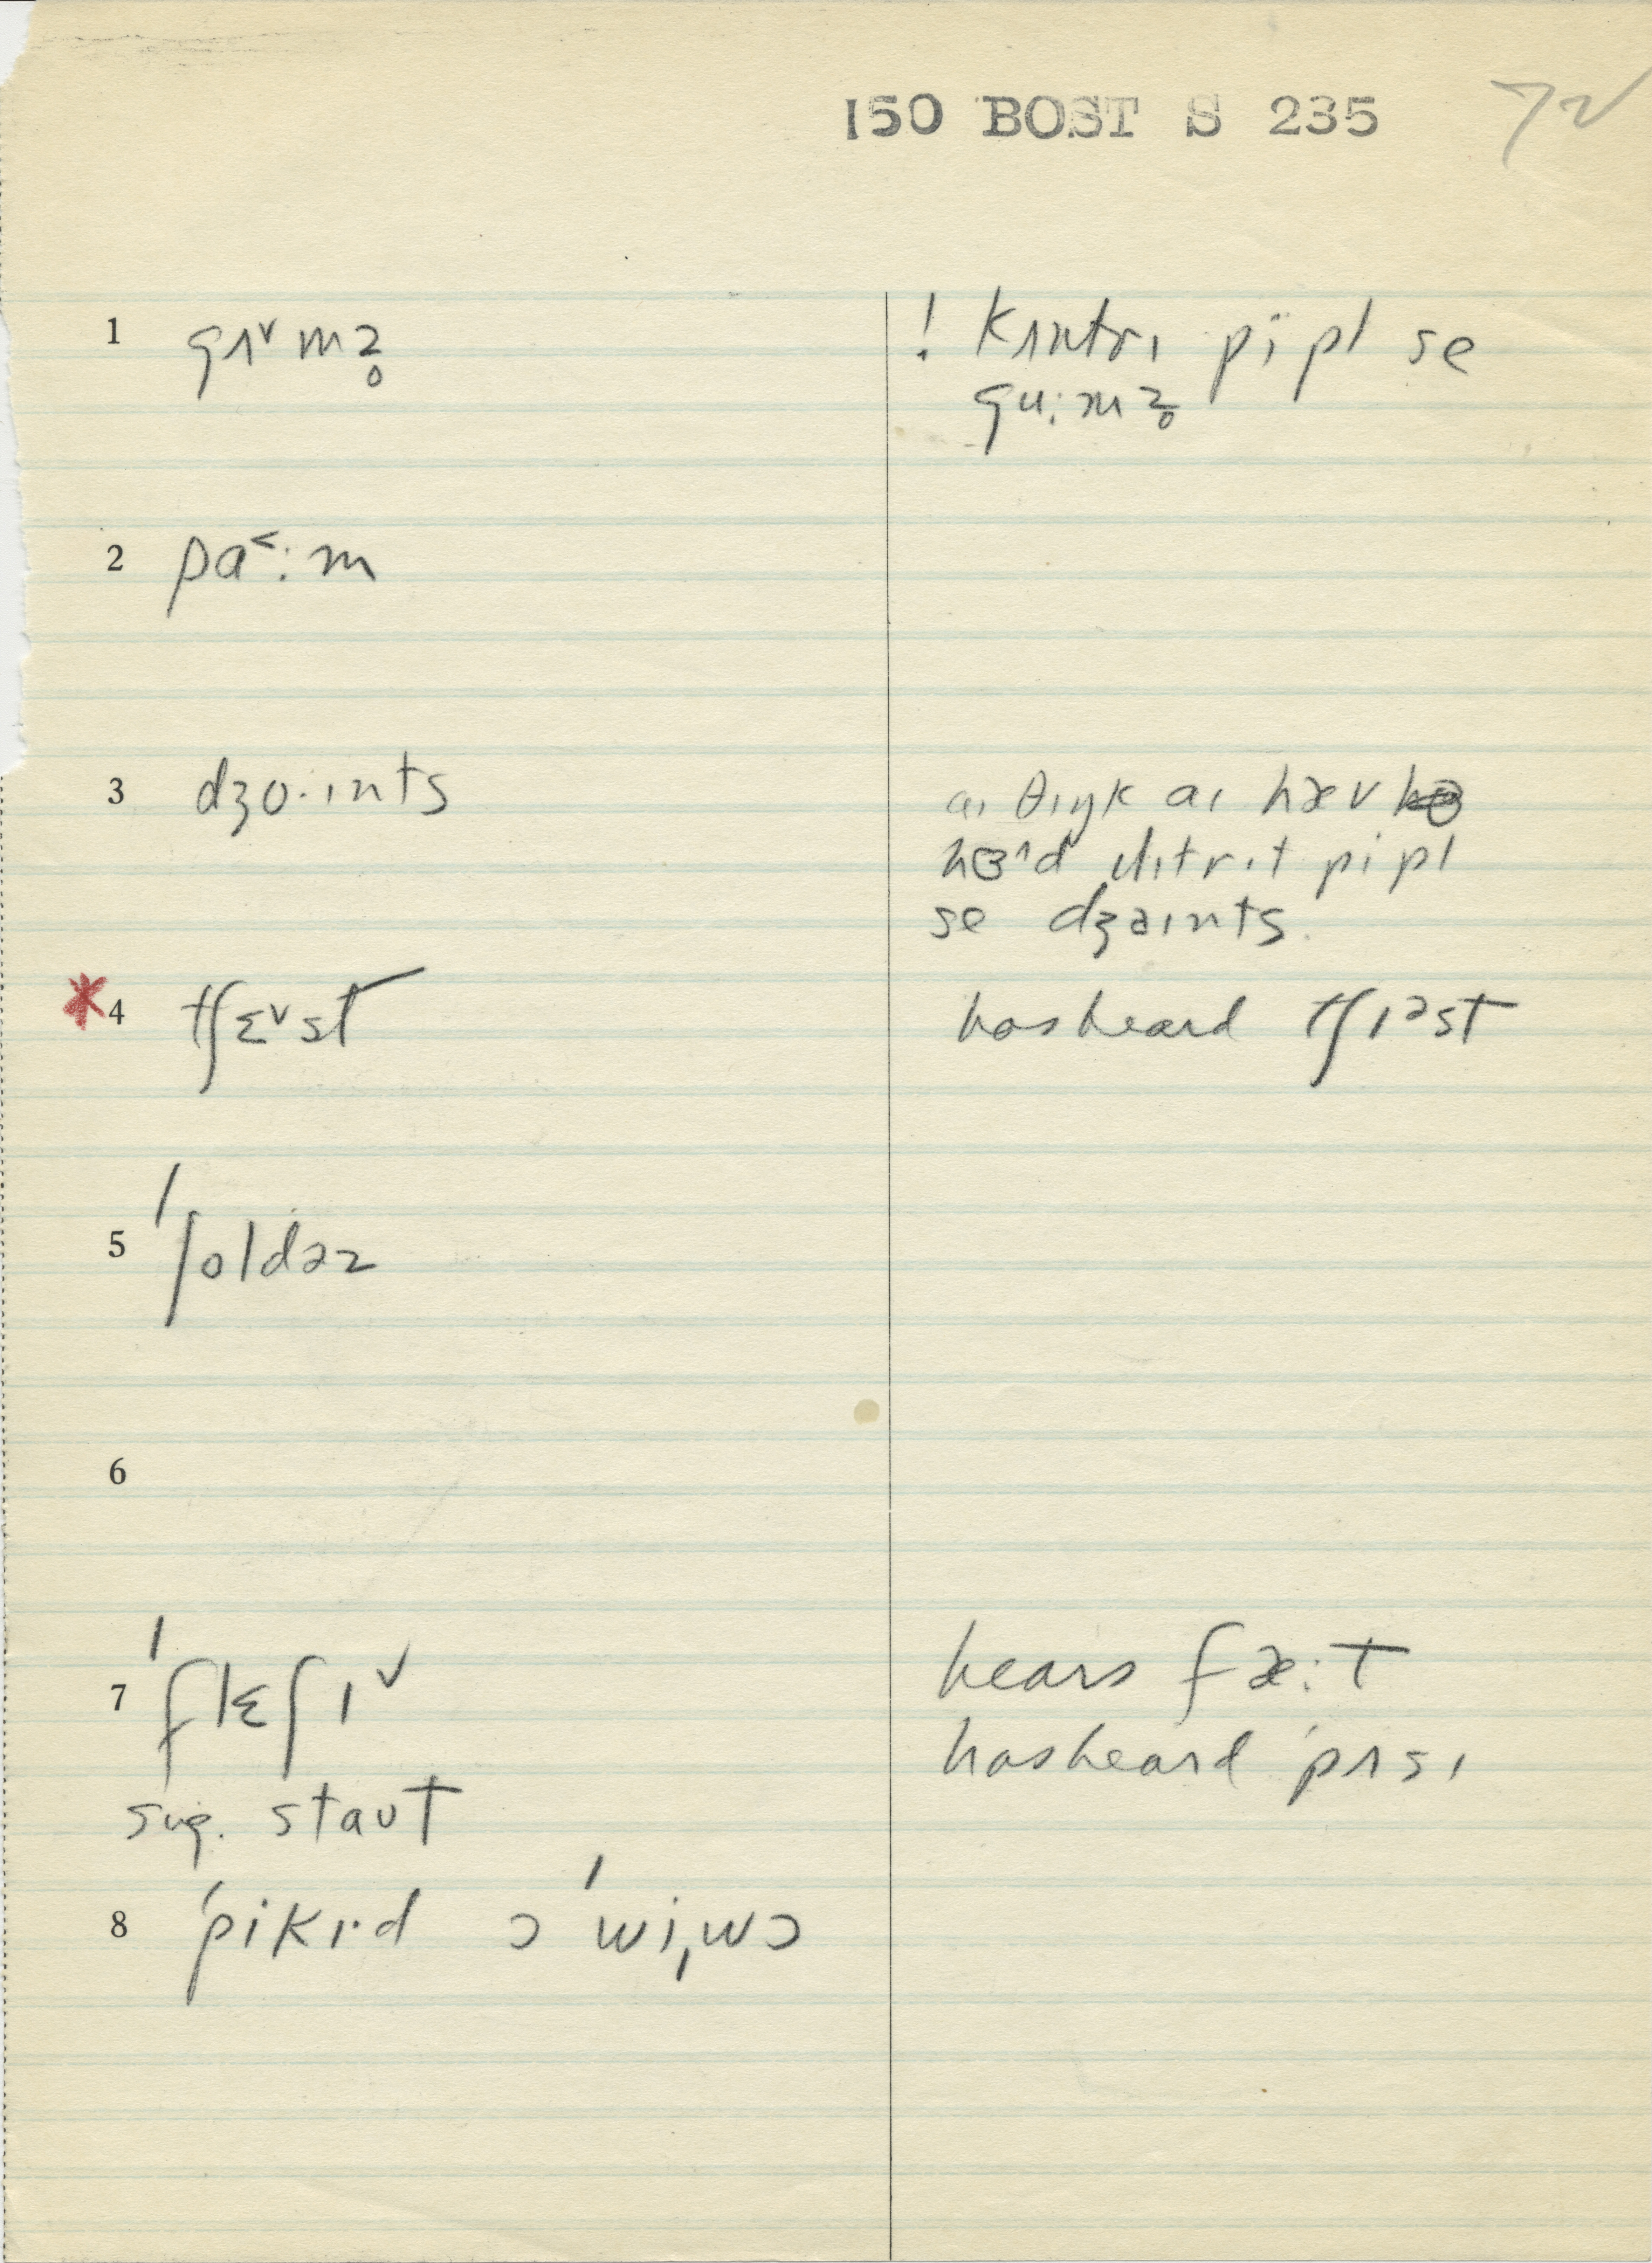 150 BOST S 235 72
1 gʌ˅mz̥ ! kʌntrɪ pïpl se
gu:mz̥
2 pɑ˂:m
3 dʒɔ·ɪnts aɪ θɪŋk aɪ hæv
hɜ^d ɪlɪtrɪt pipl
se dʒaɪnts.
*4 tʃɛ˅st has heard tʃɪəst
5 ˈʃoldəz
6
7 ˈflɛʃɪ˅ hears fæ:t
has heard ˈpʌsɪ
sug. staʊt
8 ˈpikɪ·d ɔ ˈwiˌwɔ